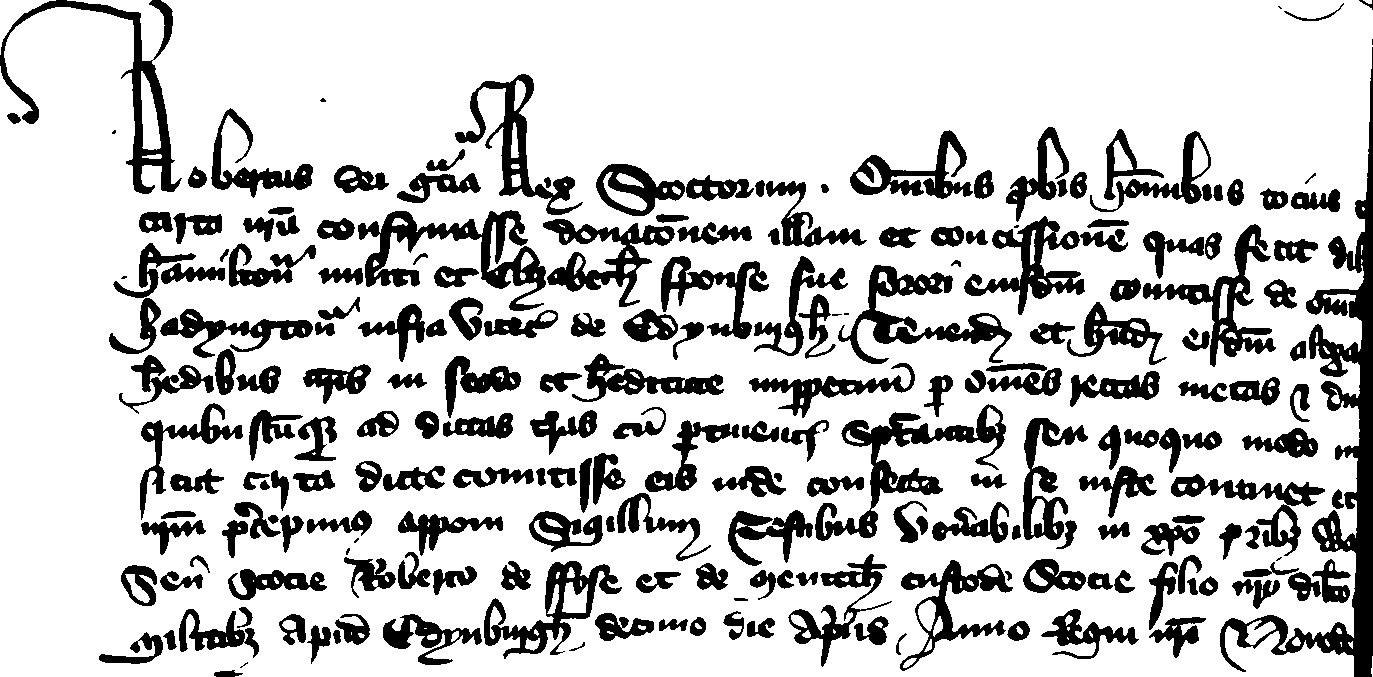 Robertus dei gr̄cia Rex Scottorum . Om̄ibus ꝓbis ho͞ibus tocius
carta nr̄a confirmasse donac̄onem illam et concessione͞ quas fecit
ham̄iltoun̄ militi et Elizabeth sponse sue sorori eiusdm̄ comitisse de
hadyngtoun̄ infra vicec̄ de Edynburgh̄ . Tenend et h̄nd eisdm̄
h̄edibus in feodo et h̄editate imꝑpetuū ꝑ om̄es rectas metas ⁊
quibuscūqꝫ ad dictas t̄ras cū ꝑtinenc̄ spectantibꝫ seu quoquo modo in
sicut carta dicte comitisse eis inde confecta in se iuste continet et
nr̄m p̄cepimus apponi Sigillum Testibus Ven̄abilibꝫ in xp̄o pr̄ibꝫ
Sen̄ Scocie Roberto de ffyfe et de Menteth̄ custode Scocie filio nr̄o dil̄co
militibꝫ Apud Edynburgh̄ decimo die Ap̄lis , Anno Regni nr̄i